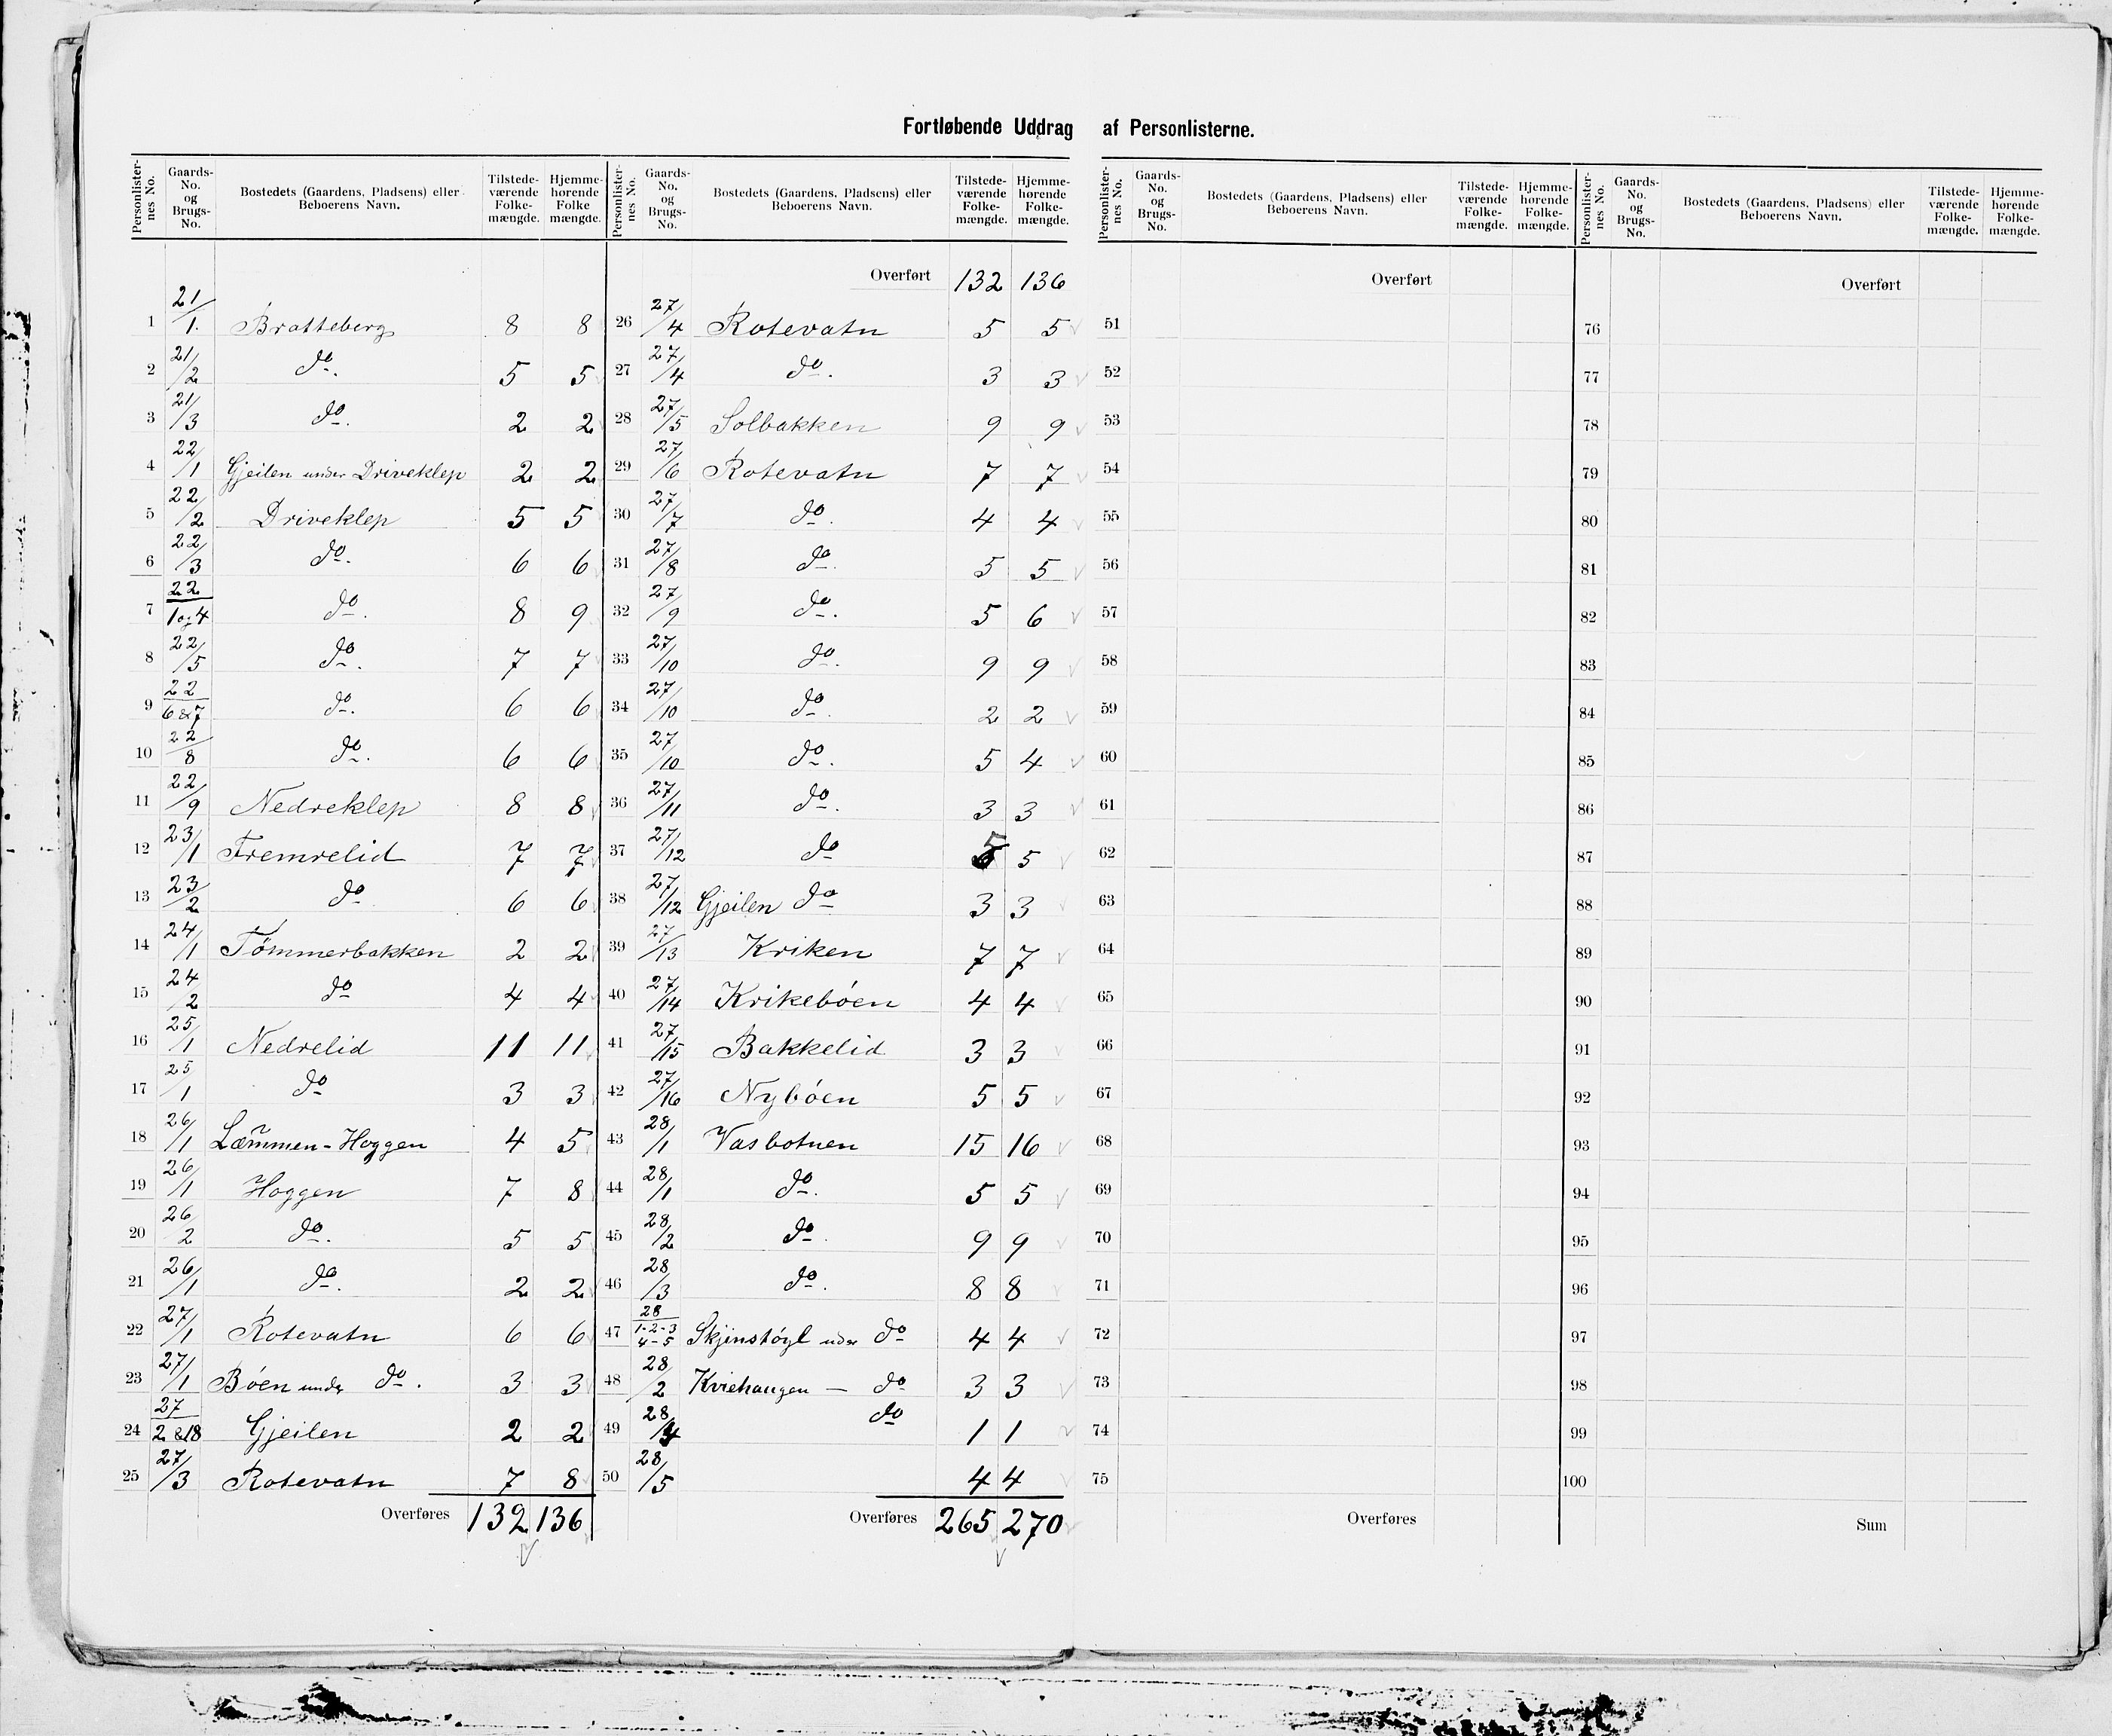 Fortløbende Uddrag af Personlisterne.
Personlister-nes No. | Gaards-No. og Brugs-No. | Bostedets (Gaardens, Pladsens) eller Beboerens Navn. | Tilstede-værende Folke-mængde. | Hjemme-hørende Folke mængde.
1 | 21/1. | Bratteberg | 8 | 8
2 | 21/2 | do. | 5 | 5
3 | 21/3 | do. | 2 | 2
4 | 22/1 | Gjeilen under Driveklep | 2 | 2
5 | 22/2 | Driveklep | 5 | 5
6 | 22/3 | do. | 6 | 6
7 | 22/1 og 4 | do. | 8 | 9
8 | 22/5 | do. | 7 | 7
9 | 22/6 & 7 | do. | 6 | 6
10 | 22/8 | do. | 6 | 6
11 | 22/9 | Nedreklep | 8 | 8
12 | 23/1 | Fremrelid | 7 | 7
13 | 23/2 | do | 6 | 6
14 | 24/1 | Tømmerbakken | 2 | 2
15 | 24/2 | do | 4 | 4
16 | 25/1 | Nedrelid | 11 | 11
17 | 25/1 | do | 3 | 3
18 | 26/1 | Læmmen-Hoggen | 4 | 5
19 | 26/1 | Hoggen | 7 | 8
20 | 26/2 | do. | 5 | 5
21 | 26/1 | do. | 2 | 2
22 | 27/1 | Rotevatn | 6 | 6
23 | 27/1 | Bøen under do. | 3 | 3
24 | 27/2 & 18 | Gjeilen | 2 | 2
25 | 27/3 | Rotevatn | 7 | 8
Overføres 132 136
Personlister-nes No. | Gaards-No. og Brugs-No. | Bostedets (Gaardens, Pladsens) eller Beboerens Navn. | Tilstede-værende Folke-mængde. | Hjemme-hørende Folke-mængde.
Overført 132 136
26 | 27/4 | Rotevatn | 5 | 5
27 | 27/4 | do. | 3 | 3
28 | 27/5 | Solbakken | 9 | 9
29 | 27/6 | Rotevatn | 7 | 7
30 | 27/7 | do. | 4 | 4
31 | 27/8 | do | 5 | 5
32 | 27/9 | do. | 5 | 6
33 | 27/10 | do. | 9 | 9
34 | 27/10 | do. | 2 | 2
35 | 27/10 | do. | 5 | 4
36 | 27/11 | do. | 3 | 3
37 | 27/12 | do | 5 | 5
38 | 27/12 | Gjeilen do | 3 | 3
39 | 27/13 | Kriken | 7 | 7
40 | 27/14 | Krikebøen | 4 | 4
41 | 27/15 | Bakkelid | 3 | 3
42 | 27/16 | Nybøen | 5 | 5
43 | 28/1 | Vasbotnen | 15 | 16
44 | 28/1 | do. | 5 | 5
45 | 28/2 | do. | 9 | 9
46 | 28/3 | do. | 8 | 8
47 | 28/1-2-3 4-5 | Skjenstøyl under do | 4 | 4
48 | 28/2 | Kviehaugen — do | 3 | 3
49 | 28/4 | do | 1 | 1
50 | 28/5 | 4 | 4
Overføres 265 270
Personlister-nes No. | Gaards-No. og Brugs-No. | Bostedets (Gaardens, Pladsens) eller Beboerens Navn. | Tilstede-værende Folke-mængde. | Hjemme-hørende Folke-mængde.
Overført
51
52
53
54
55
56
57
58
59
60
61
62
63
64
65
66
67
68
69
70
71
72
73
74
75
Overføres
Personlister-nes No. | Gaards-No. og Brugs-No. | Bostedets (Gaardens, Pladsens) eller Beboerens Navn. | Tilstede-værende Folke-mængde. | Hjemme-hørende Folke-mængde.
Overført
76
77
78
79
80
81
82
83
84
85
86
87
88
89
90
91
92
93
94
95
96
97
98
99
100
Sum